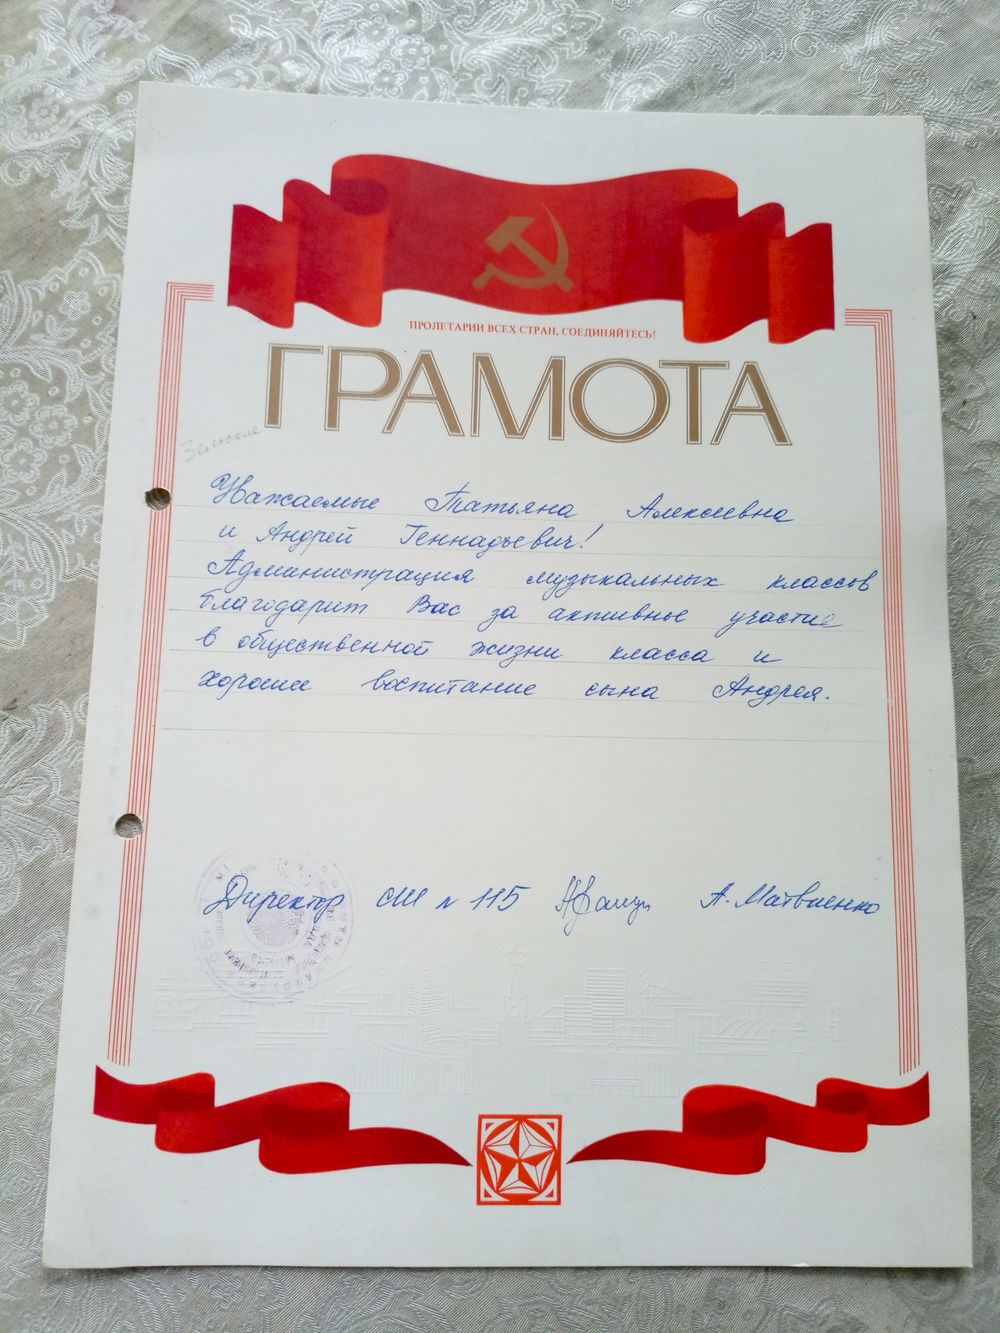 ПРОЛЕТАРИИ ВСЕХ СТРАН, СОЕДИНЯЙТЕСЬ!
ГРАМОТА
Уважаемые Татьяна Алексеевна
и Андрей Геннадьевич!
Администрация музыкальных классов
благодарит Вас за активное участие
в общественной жизни класса и
хорошее воспитание сына Андрея.
Директор СШ № 115 А. Матвиенко